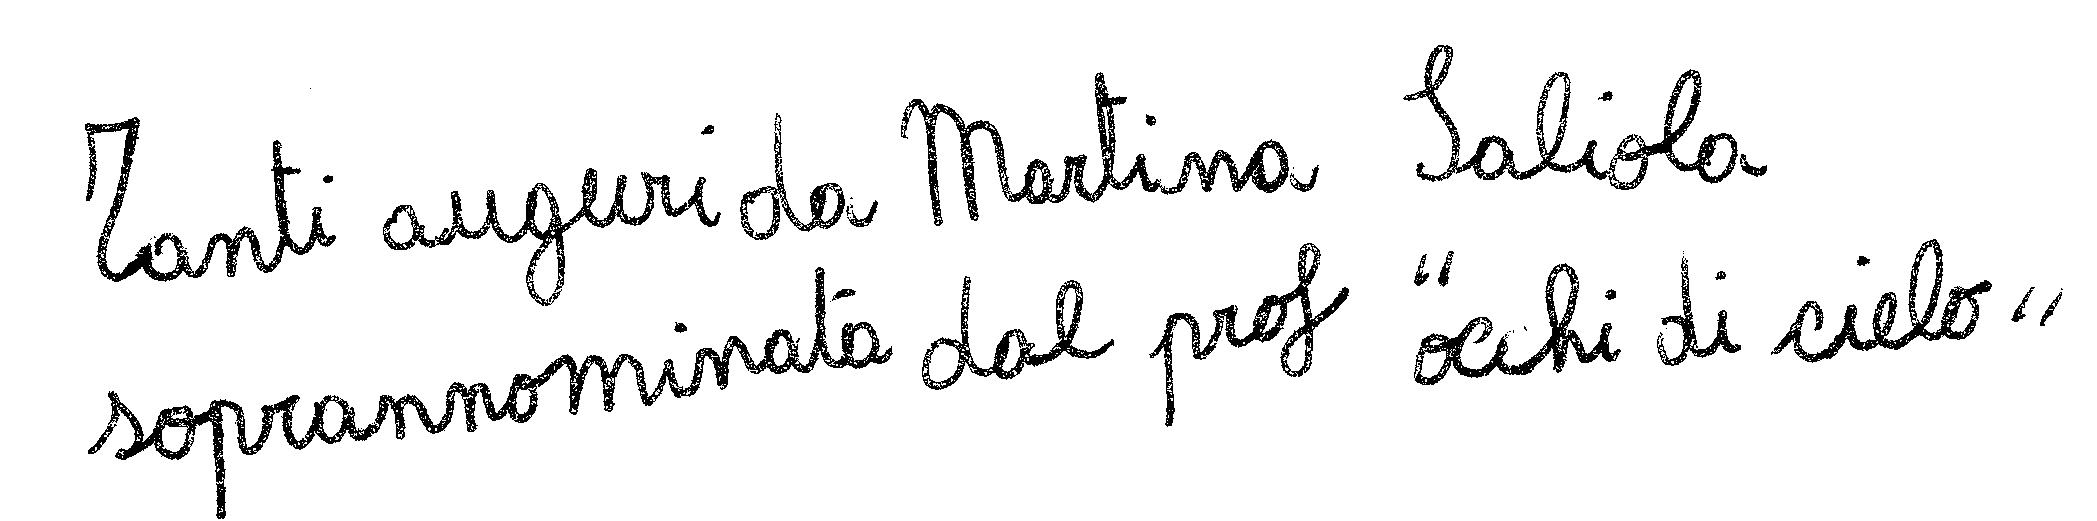 Tanti auguri da Martina Saliola
soprannominata dal prof "occhi di cielo"